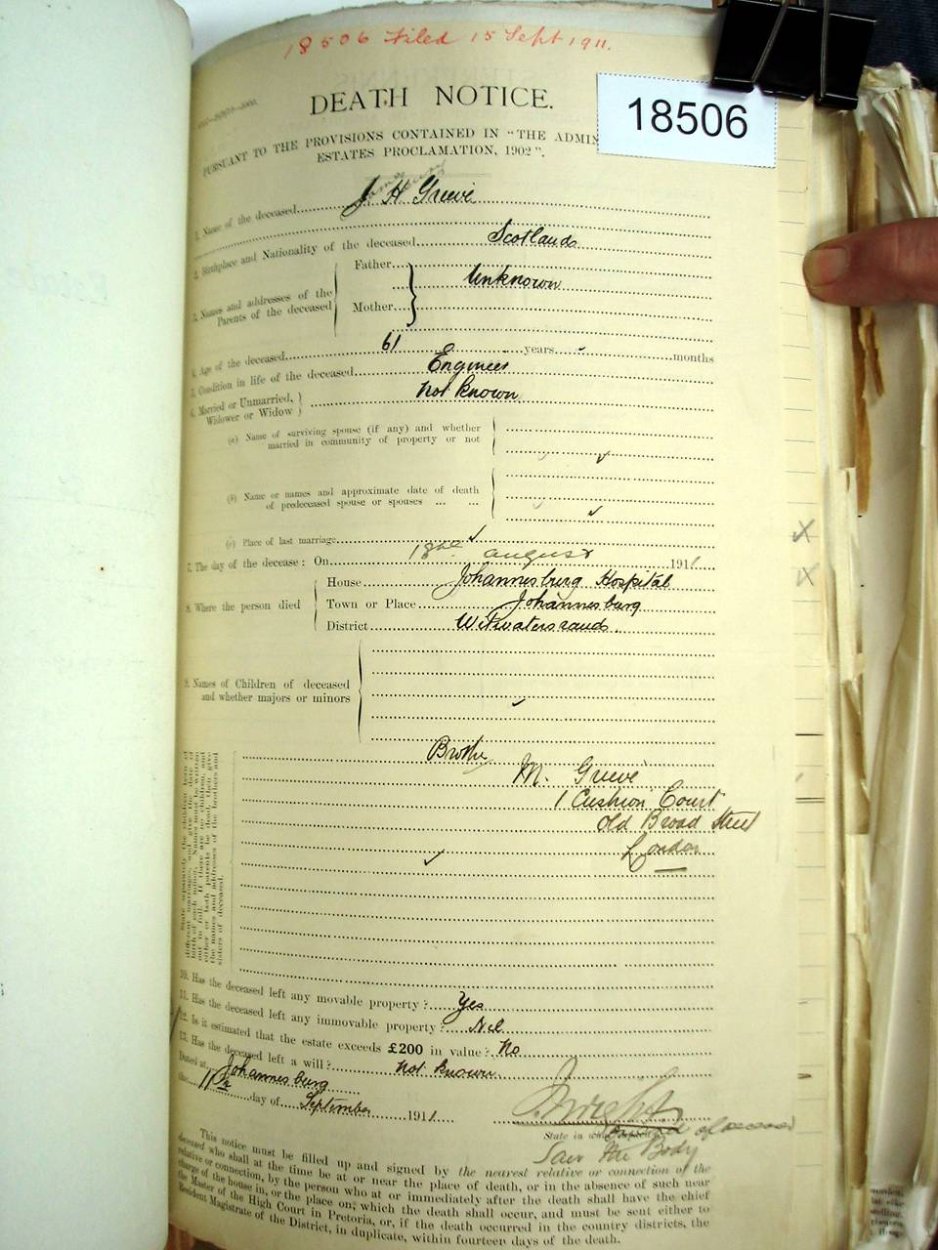 18506 Filed 15 Sept 1911.
DEATH NOTICE.
18506
PURSUANT TO THE PROVISIONS CONTAINED IN "THE ADMIN
ESTATES PROCLAMATION, 1902".
1. Name of the deceased J H Grieve
2. Birthplace and Nationality of the deceased Scotland
3. Names and addresses of the Parents of the deceased
Father
Unknown
Mother
4. Age of the deceased 61 years - months
5. Condition in life of the deceased Engineer
6. Married or Unmarried, Widower or Widow not known
(a) Name of surviving spouse (if any) and whether
married in community of property or not
(b) Name or names and approximate date of death
of predeceased spouse or spouses ... ...
(c) Place of last marriage
7. The day of the decease: On 18th august 1911
8. Where the person died
House Johannesburg Hospital
Town or Place Johannesburg
District Witwatersrand.
9. Names of Children of deceased
and whether majors or minors
Brother
M. Grieve
1 Cushion Court
Old Broad Street
London
10. Has the deceased left any movable property? Yes
11. Has the deceased left any immovable property? Nil
12. Is it estimated that the estate exceeds £200 in value? No
13. Has the deceased left a will? not known
Dated at Johannesburg
the 11th day of September 1911
State in of deceased
Saw the Body
This notice must be filled up and signed by the nearest relative or connection of the
deceased who shall at the time be at or near the place of death, or in the absence of such near
relative or connection, by the person who at or immediately after the death shall have the chief
charge of the house in, or the place on, which the death shall occur, and must be sent either to
the Master of the High Court in Pretoria, or, if the death occurred in the country districts, the
Resident Magistrate of the District, in duplicate, within fourteen days of the death.